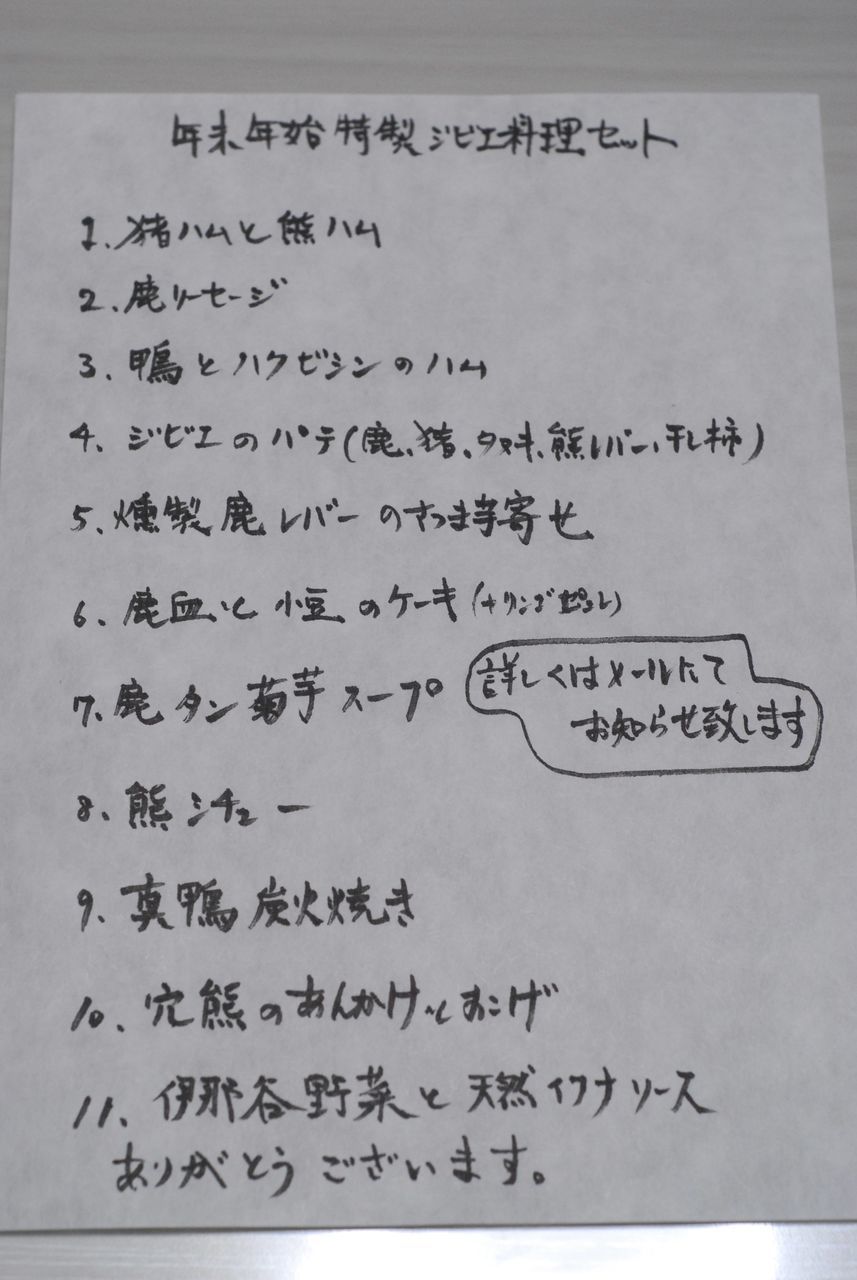 年末年始特製ジビエ料理セット
1. 猪ハムと熊ハム
2. 鹿ソーセージ
3. 鴨とハクビシンのハム
4. ジビエのパテ(鹿、猪、タヌキ、熊レバー、干し柿)
5. 燻製鹿レバーのさつま芋寄せ
6. 鹿血と小豆のケーキ(+リンゴピュレ)
7. 鹿タン菊芋スープ
詳しくはメールにて
お知らせ致します
8. 熊シチュー
9. 真鴨炭火焼き
10. 穴熊のあんかけとおこげ
11. 伊那谷野菜と天然イワナソース
ありがとうございます。